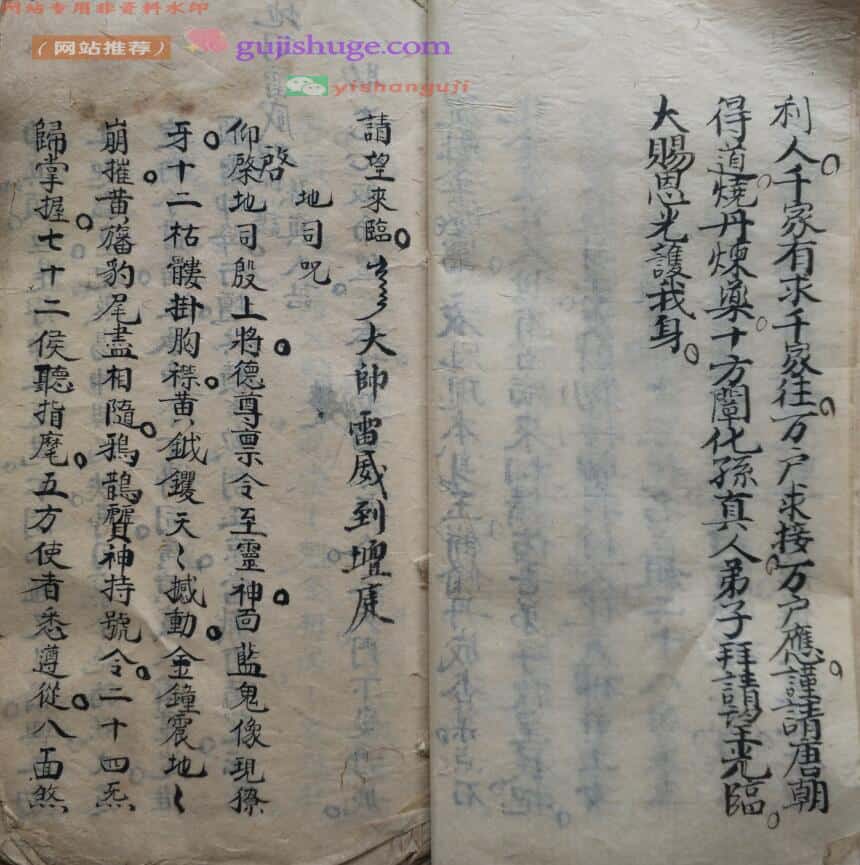 网站专用非资料水印
（网站推荐）
gujishuge.com
yishanguji
利人千家有求千家往万户求接万户應謹請唐朝
得道燒丹煉藥十方闡化孫真人弟子拜請望光臨
大賜恩光護我身
請望來臨 大帥雷威到壇庭
地司咒
仰啓地司殷上將德尊禀令至靈神面藍鬼像現獠
啓
牙十二枯髏掛胸襟黄鉞钁天〻撼動金鐘震地〻
崩摧黄旛豹尾盡相隨鴉鵲
神持號令二十四炁
歸掌握七十二侯聽指麾五方使者悉遵從八面煞